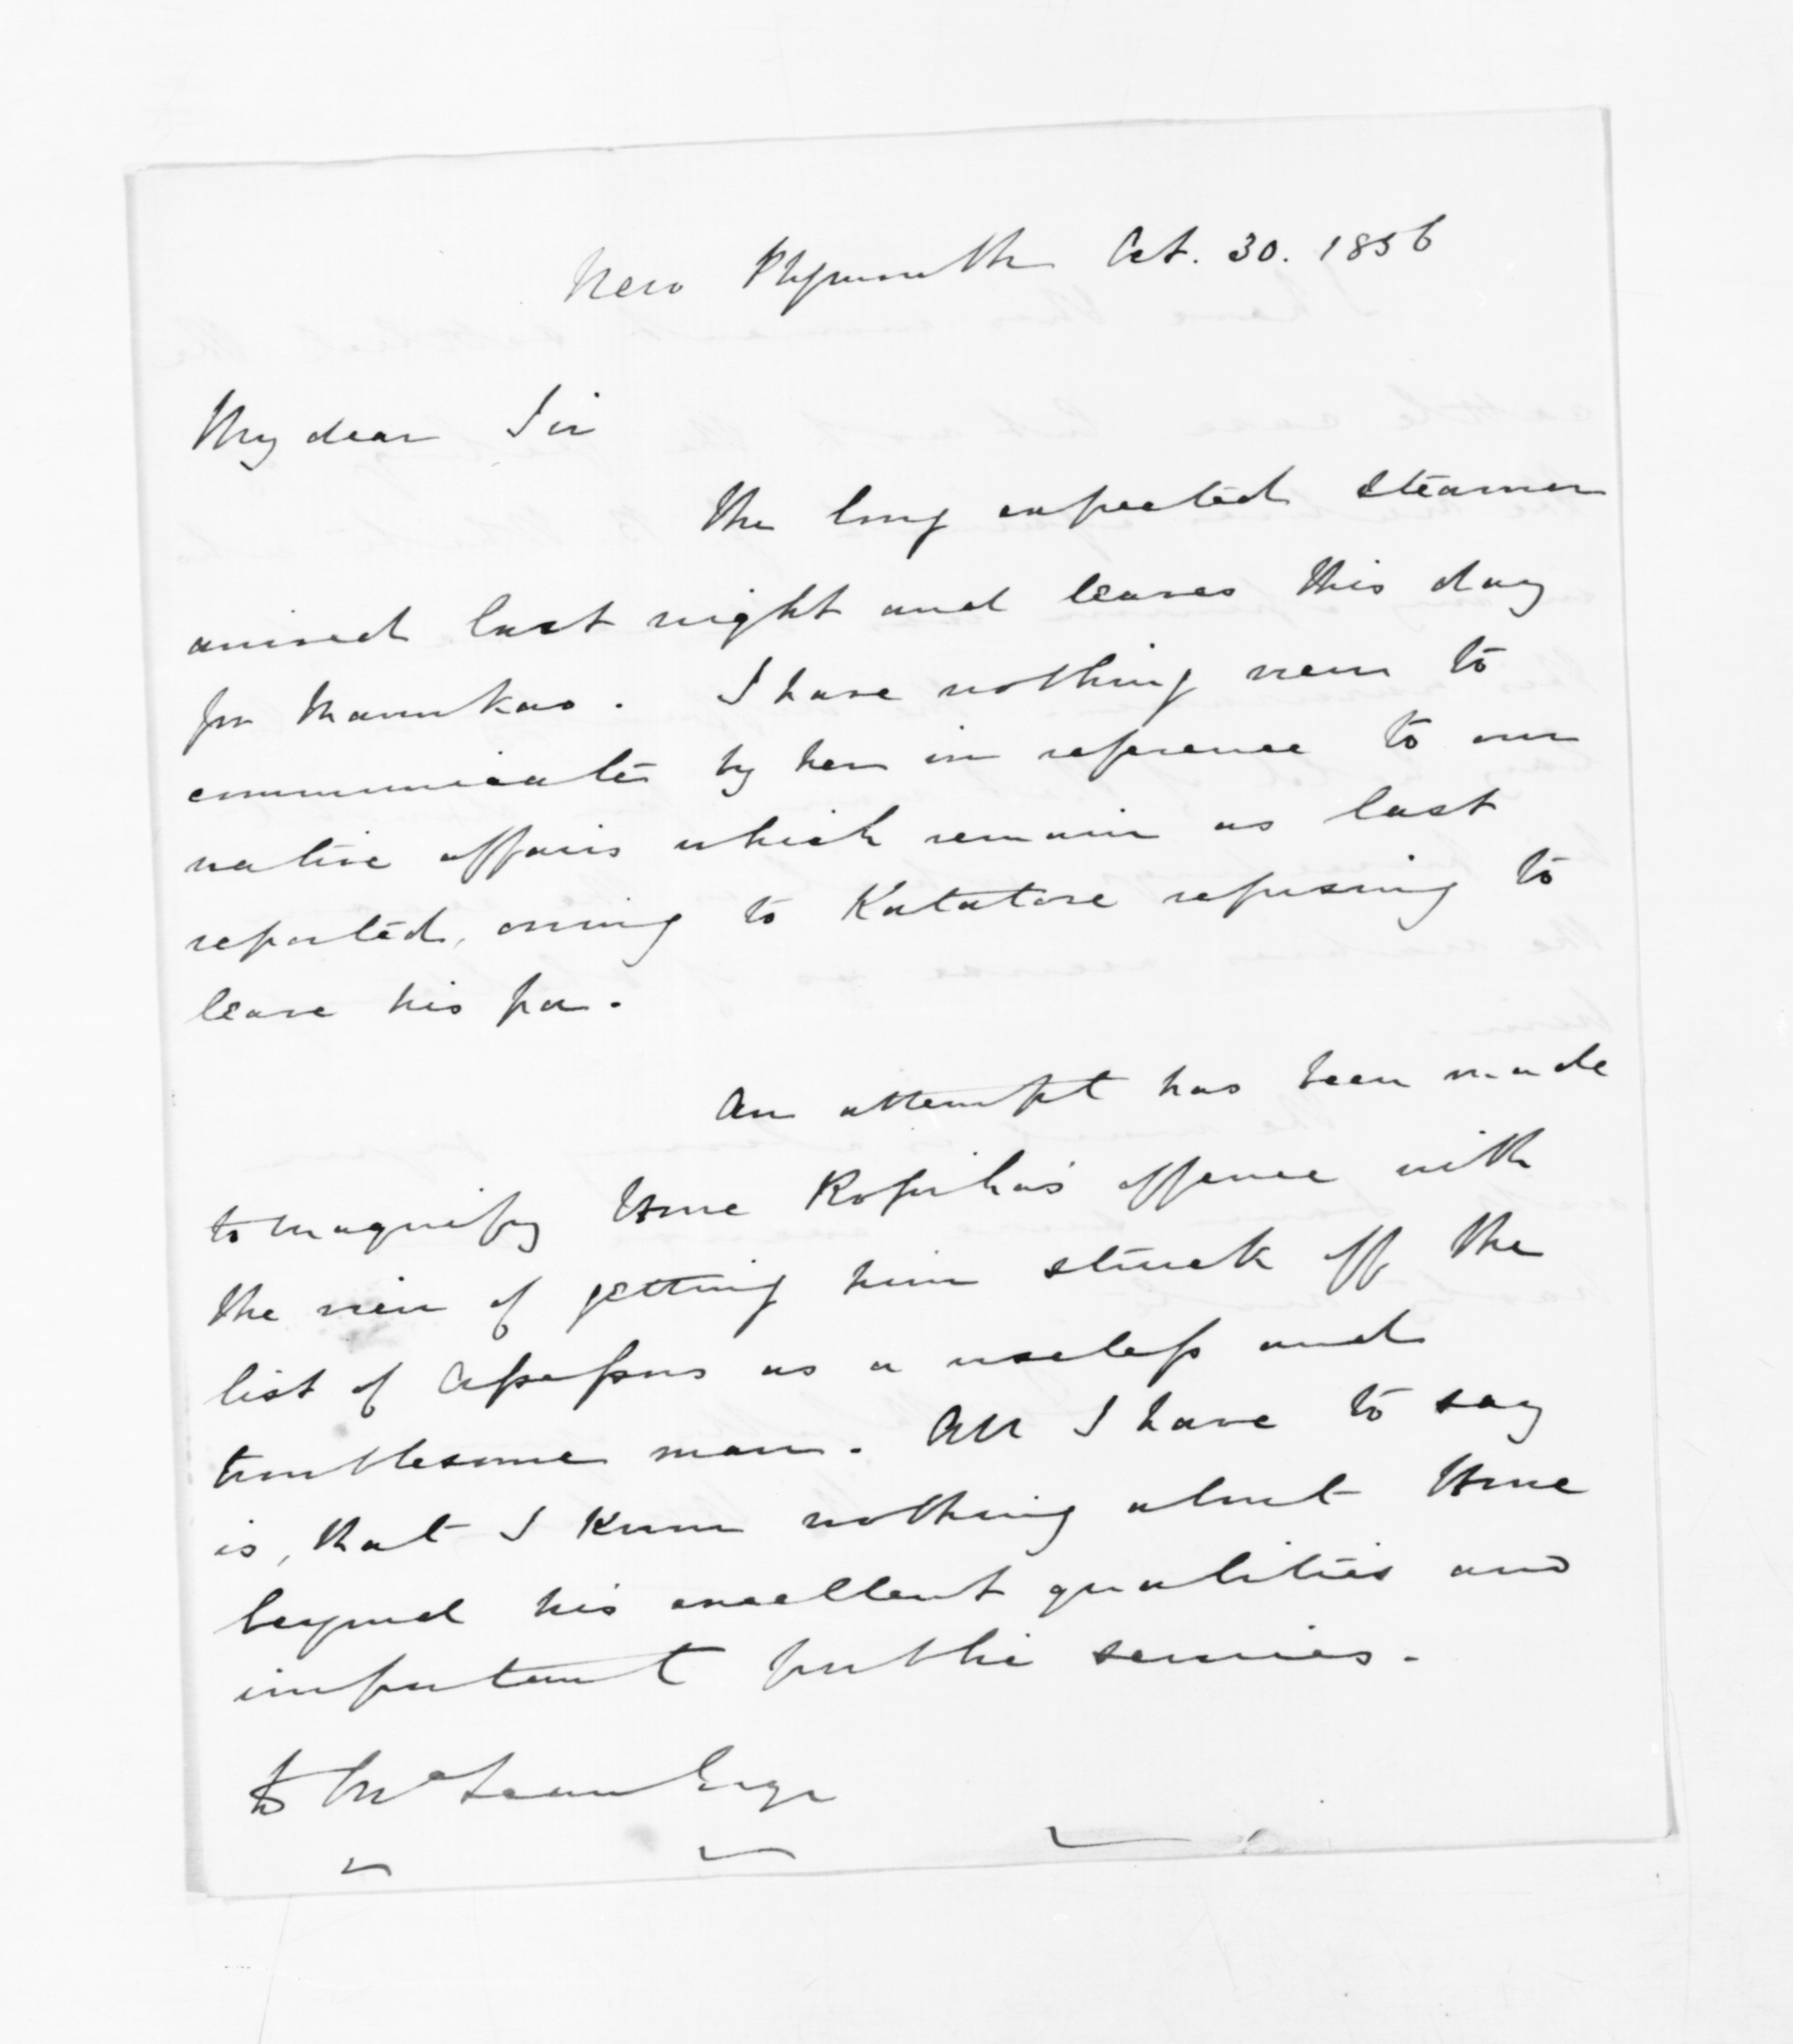 New Plymouth Oct. 30. 1856
My dear Sir
The long expected steamer
arrived last night and leaves this day
for Manukao. I have nothing new to
communicate by her in reference to our
native affairs which remain as last
reported, owing to Katatore refusing to
leave his pa.
An attempt has been made
to magnify Hone Ropiha's offence with
the view of getting him struck off the
list of Assessors as a useless and
troublesome man. All I have to say
is, that I know nothing about Hone
beyond his excellent qualities and
important public services.
McLean Esqr